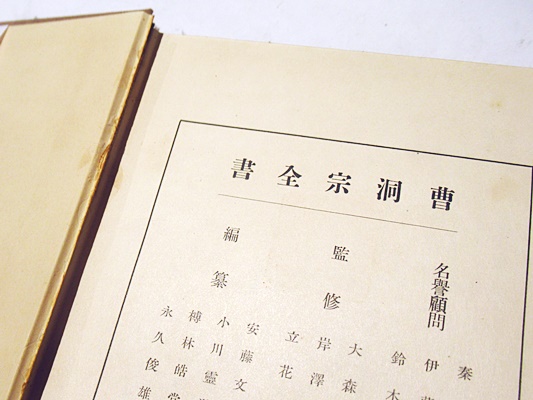 曹洞宗全書
名譽顧問
秦
伊
鈴木
監修
大森
岸澤
立花
編纂
安藤文
小川靈
榑林皓堂
永久俊雄